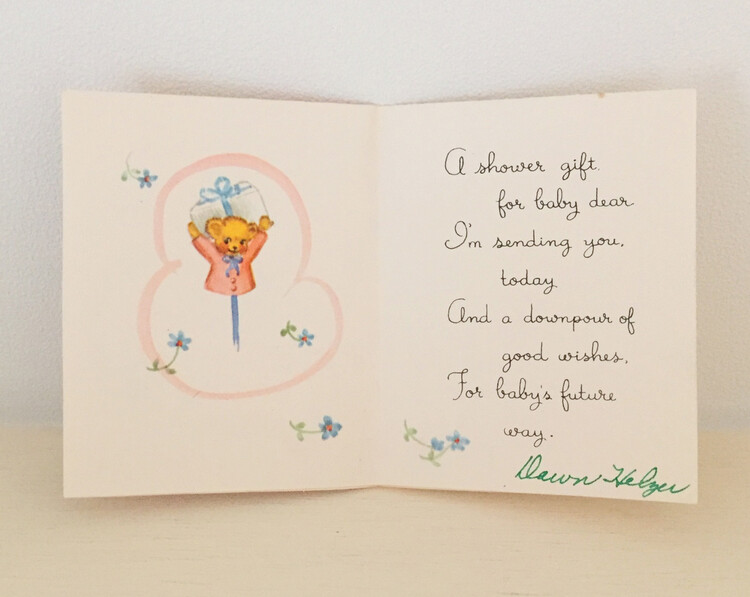 A shower gift
for baby dear
I'm sending you,
today
And a downpour of
good wishes,
For baby's future
way.
Dawn Helzer